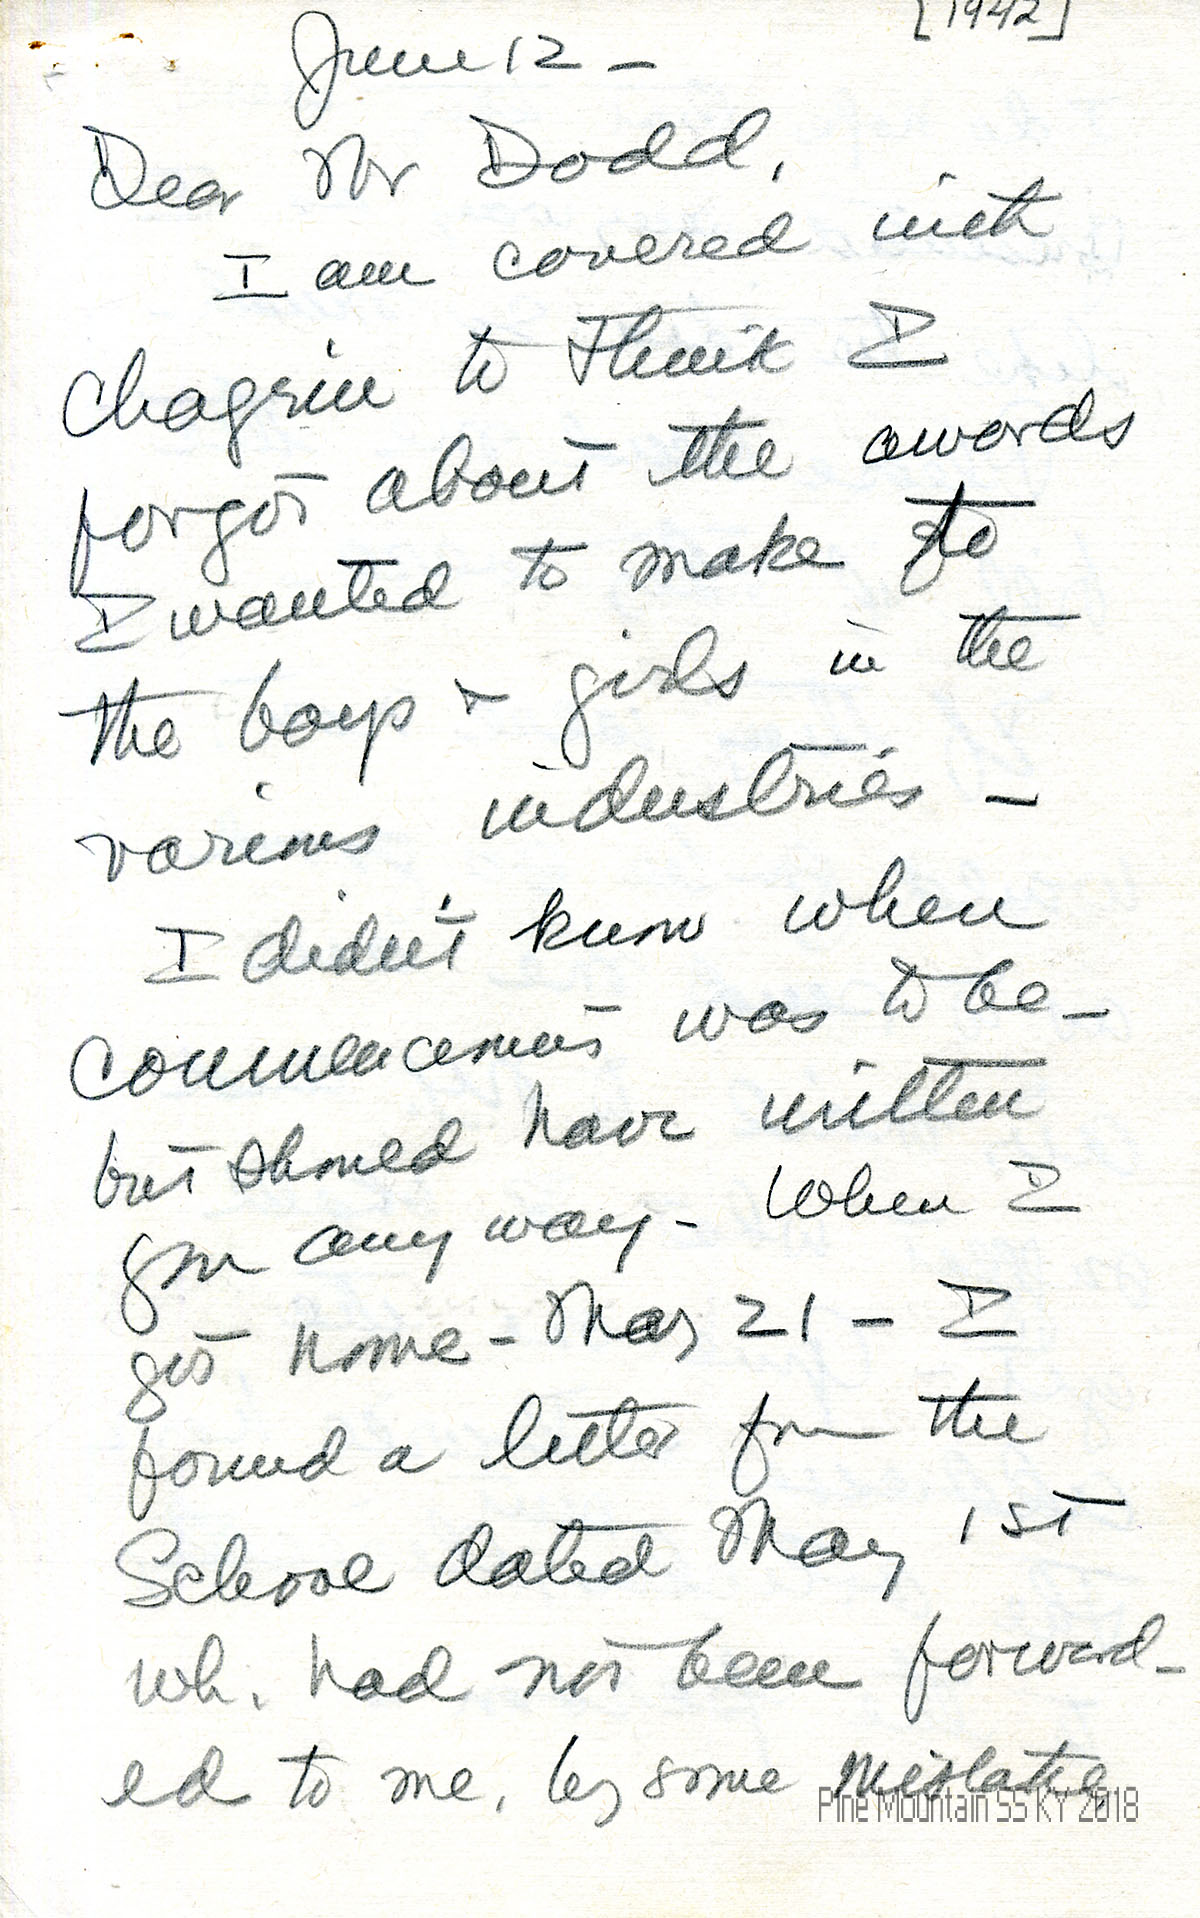 [1942]
June 12 –
Dear Mr Dodd,
I am covered with
chagrin to think I
forgot about the awards
I wanted to make to
the boys & girls in the
various industries –
I didn't know when
commencement was to be –
but should have written
you anyway – When I
got home – May 21 – I
found a letter from the
School dated May 1st
wh. had not been forward-
ed to me, by some mistake,
Pine Mountain SS KY 2018